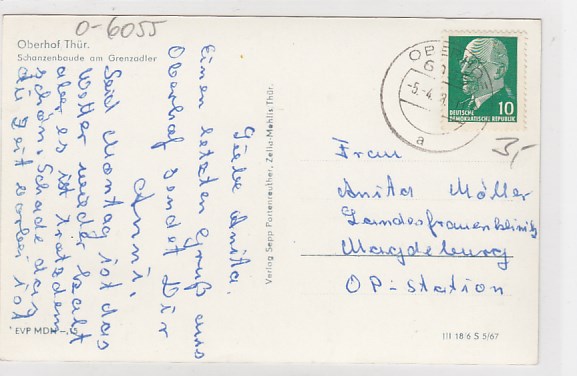 O-6055
Oberhof Thür.
Schanzenbaude am Grenzadler
Liebe Anita.
Einen letzten Gruß aus
Oberhof sendet Dir
Anni.
Seid Montag ist das
Wetter wieder kalt
aber es ist trotzdem
schön. Schade das
die Zeit vorbei ist
EVP MDN -,15
Verlag Sepp Portenreuther, Zella-Mehlis Thür.
OBE
-5.-4.
a
10
DEUTSCHE
DEMOKRATISCHE REPUBLIK
3,-
Frau
Anita Möller
Landesfrauenklinik
Magdeburg
OP-Station
III 18/6 S 5/67